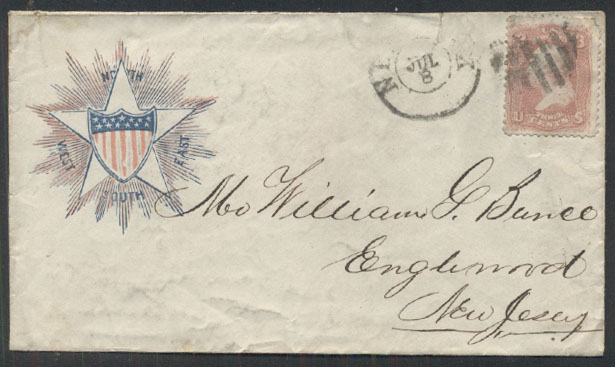 NORTH
WEST
EAST
SOUTH
JUL
8
U S
THREE
CENTS
William G. Bunce
Englewood
New Jersey